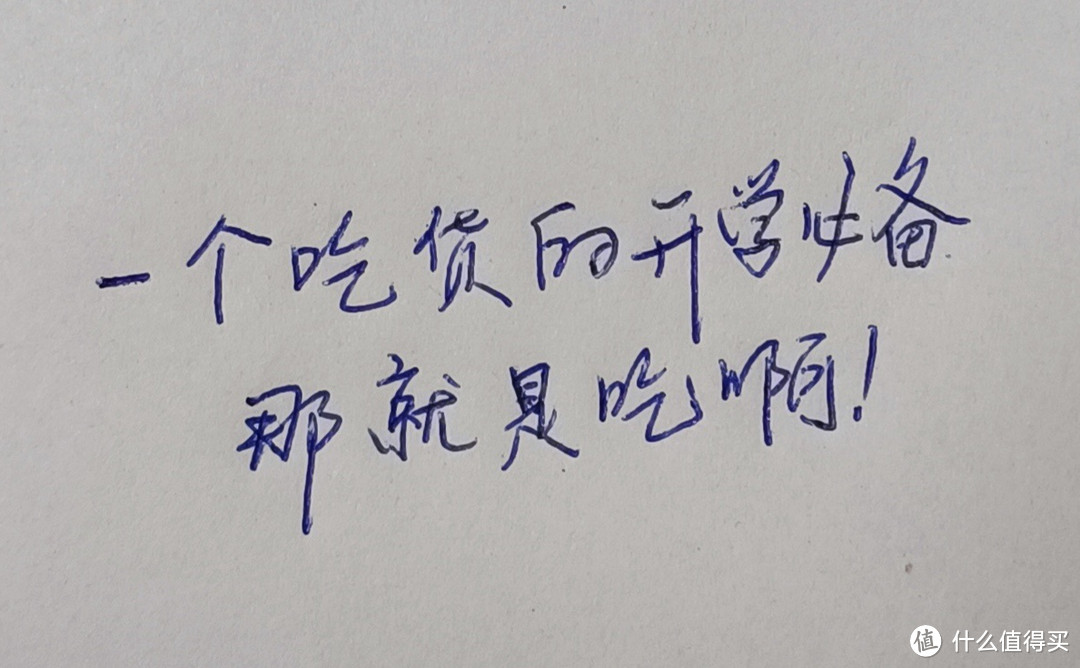 一个吃货的开学必备
那就是吃啊!
值 什么值得买